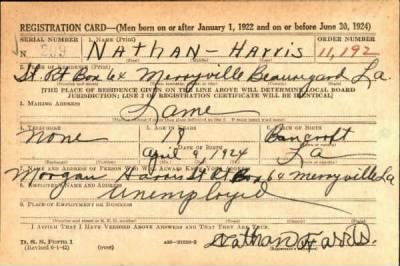 REGISTRATION CARD—(Men born on or after January 1, 1922 and on or before June 30, 1924)
SERIAL NUMBER 1. NAME (Print) ORDER NUMBER
NATHAN - Harris 11,192
(First) (Middle) (Last)
St. Rt Box 64 Merryville Beauregard La.
[THE PLACE OF RESIDENCE GIVEN ON THE LINE ABOVE WILL DETERMINE LOCAL BOARD
JURISDICTION; LINE 2 OF REGISTRATION CERTIFICATE WILL BE IDENTICAL]
3. MAILING ADDRESS
Same
4. TELEPHONE 5. AGE IN YEARS 6. PLACE OF BIRTH
None 18 Bancroft
DATE OF BIRTH
April 9, 1924 La
7. NAME AND ADDRESS OF PERSON WHO WILL ALWAYS KNOW YOUR ADDRESS
Morgan Harris St Rt Box 64 Merryville La
8. EMPLOYER'S NAME AND ADDRESS
Unemployed
9. PLACE OF EMPLOYMENT OR BUSINESS
I AFFIRM THAT I HAVE VERIFIED ABOVE ANSWERS AND THAT THEY ARE TRUE.
D. S. S. FORM 1
(Revised 6-1-42)
Nathan Harris.